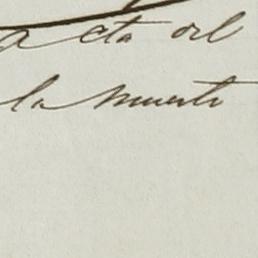 acta del
la muerte